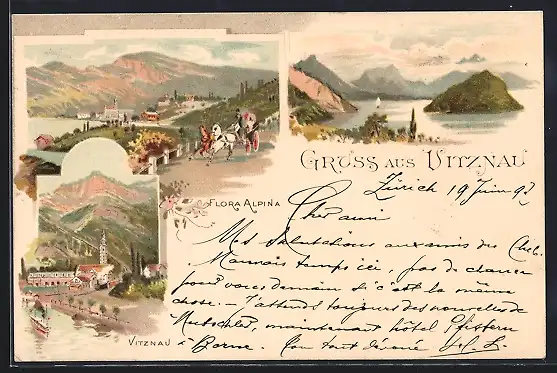 GRUSS AUS VITZNAU
FLORA ALPINA
VITZNAU
Zürich 19 Juin 97
Cher ami
Mes salutations aux amis du
Mauvais temps ici, pas de chance
pour vous demain si c'est la même
chose. - J'attends toujours des nouvelles de
maintenant hôtel Pfistern
à Berne. Ton tout dévoué